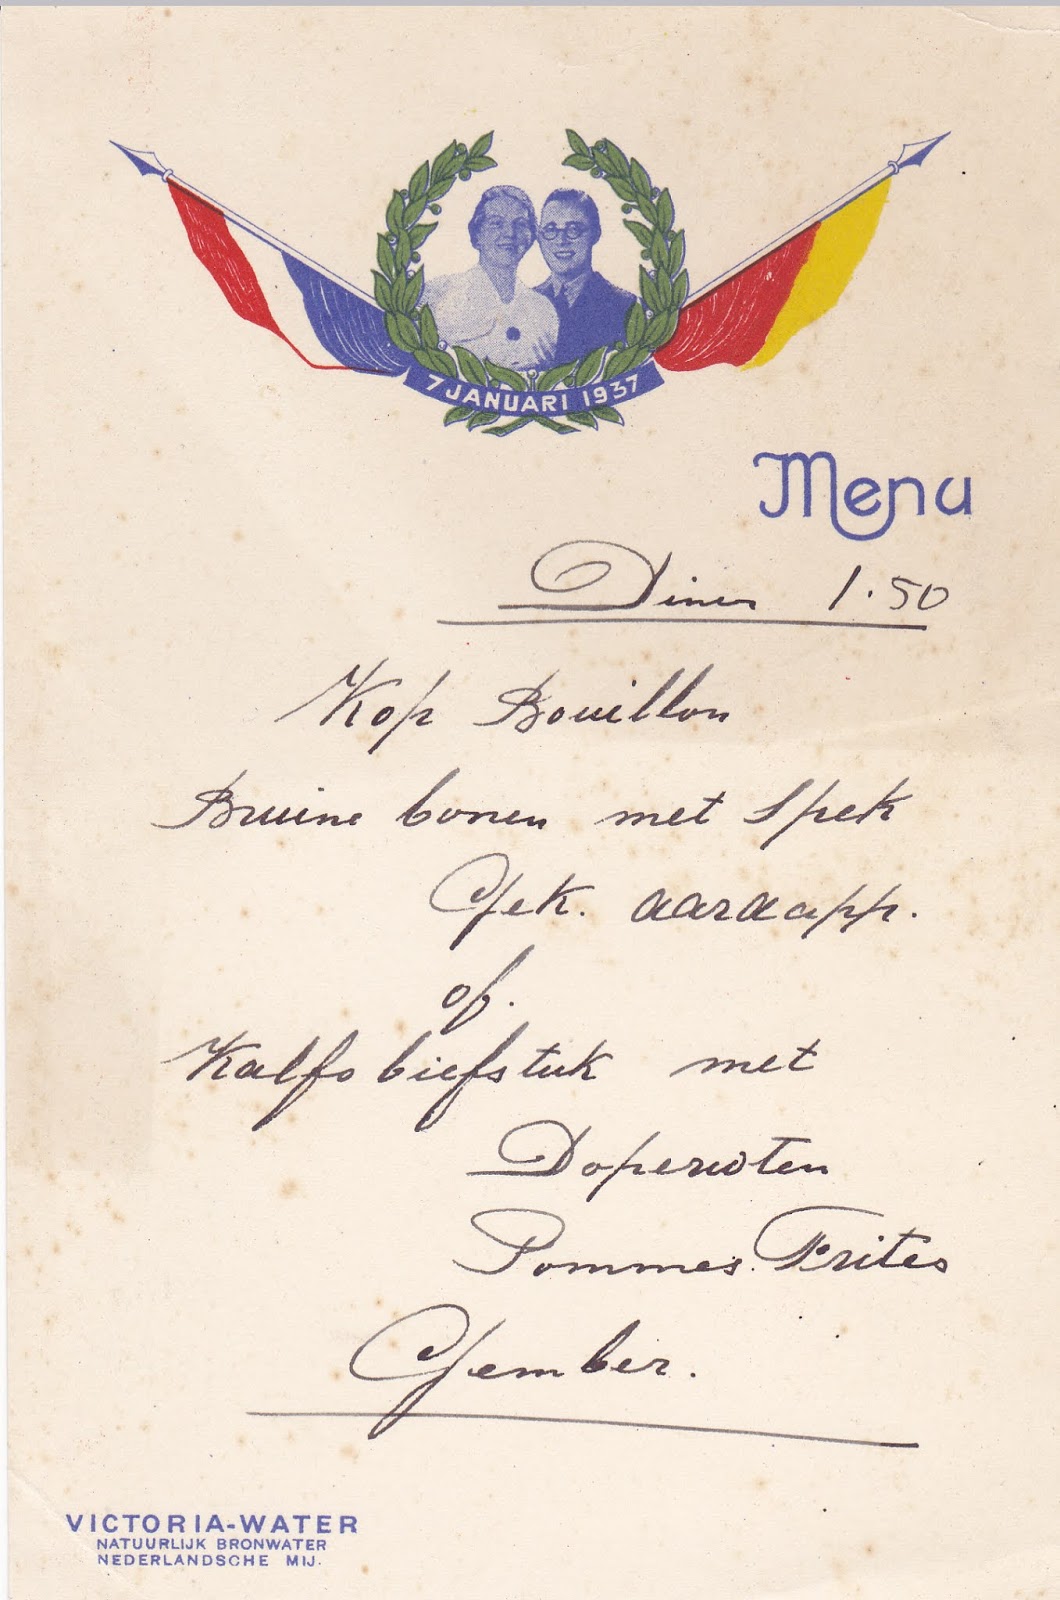 7 JANUARI 1937
Menu
Diner 1.50
Kop Bouillon
Bruine bonen met Spek
Gek. aardapp.
of.
Kalfsbiefstuk met
Doperwten
Pommes Frites
Gember.
VICTORIA-WATER
NATUURLIJK BRONWATER
NEDERLANDSCHE MIJ.